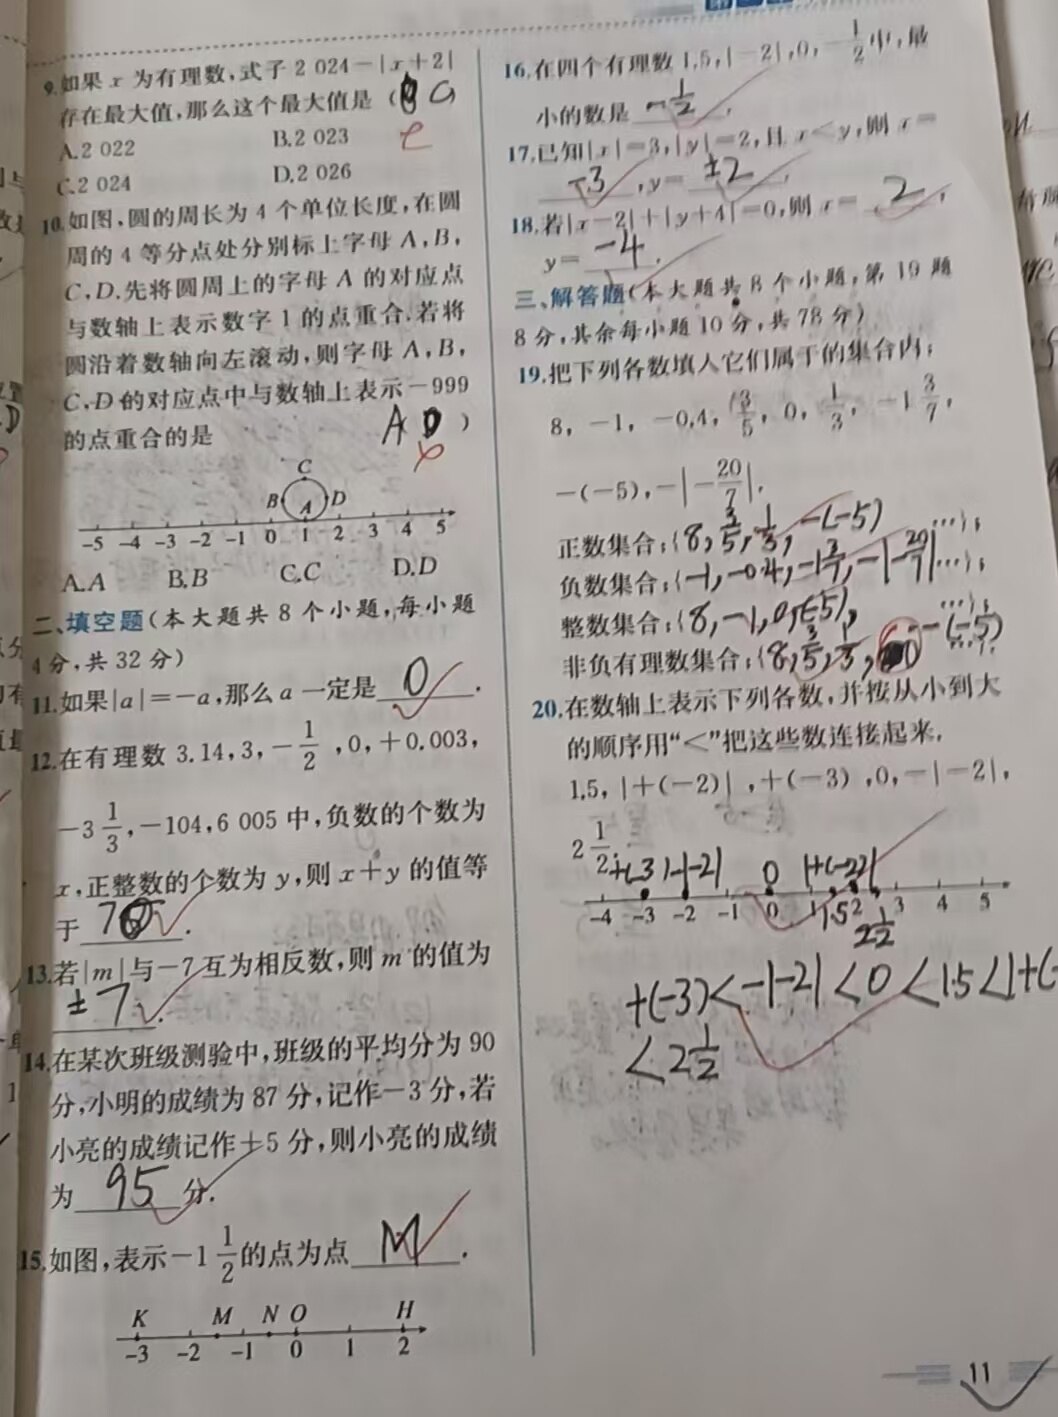 9.如果 x 为有理数,式子 2 024－|x＋2|
存在最大值,那么这个最大值是 (
A.2 022 B.2 023
C.2 024 D.2 026
10.如图,圆的周长为 4 个单位长度,在圆
周的 4 等分点处分别标上字母 A,B,
C,D.先将圆周上的字母 A 的对应点
与数轴上表示数字 1 的点重合.若将
圆沿着数轴向左滚动,则字母 A,B,
C,D 的对应点中与数轴上表示－999
的点重合的是 A D )
C
B A D
-5 -4 -3 -2 -1 0 1 2 3 4 5
A.A B.B C.C D.D
二、填空题(本大题共 8 个小题,每小题
4 分,共 32 分)
11.如果|a|＝－a,那么 a 一定是 0 .
12.在有理数 3.14,3,－1/2,0,＋0.003,
－3 1/3,－104,6 005 中,负数的个数为
x,正整数的个数为 y,则 x＋y 的值等
于 7 .
13.若|m|与－7 互为相反数,则 m 的值为
±7 .
14.在某次班级测验中,班级的平均分为 90
分,小明的成绩为 87 分,记作－3 分,若
小亮的成绩记作＋5 分,则小亮的成绩
为 95 分.
15.如图,表示－1 1/2 的点为点 M .
K M N O H
-3 -2 -1 0 1 2
16.在四个有理数 1.5,|－2|,0,－1/2 中,最
小的数是 -1/2 .
17.已知|x|＝3,|y|＝2,且 x＜y,则 x＝
-3 ,y＝ ±2 .
18.若|x－2|＋|y＋4|＝0,则 x＝ 2 ,
y＝ -4 .
三、解答题(本大题共 8 个小题,第 19 题
8 分,其余每小题 10 分,共 78 分)
19.把下列各数填入它们属于的集合内:
8, －1, －0.4, 3/5, 0, 1/3, －1 3/7,
－(－5),－|－20/7|.
正数集合:{8, 3/5, 1/3, -(-5) …};
负数集合:{-1, -0.4, -1 3/7, -|-20/7| …};
整数集合:{8, -1, 0, (-5), …};
非负有理数集合:{8, 3/5, 1/3, -(-5) …}.
20.在数轴上表示下列各数,并按从小到大
的顺序用“＜”把这些数连接起来.
1.5, |＋(－2)|, ＋(－3), 0,－|－2|,
2 1/2.
+(-3) -|-2| 0 |+(-2)|
-4 -3 -2 -1 0 1 1.5 2 3 4 5
2 1/2
+(-3)<-|-2|<0<1.5<|+(-
<2 1/2
11